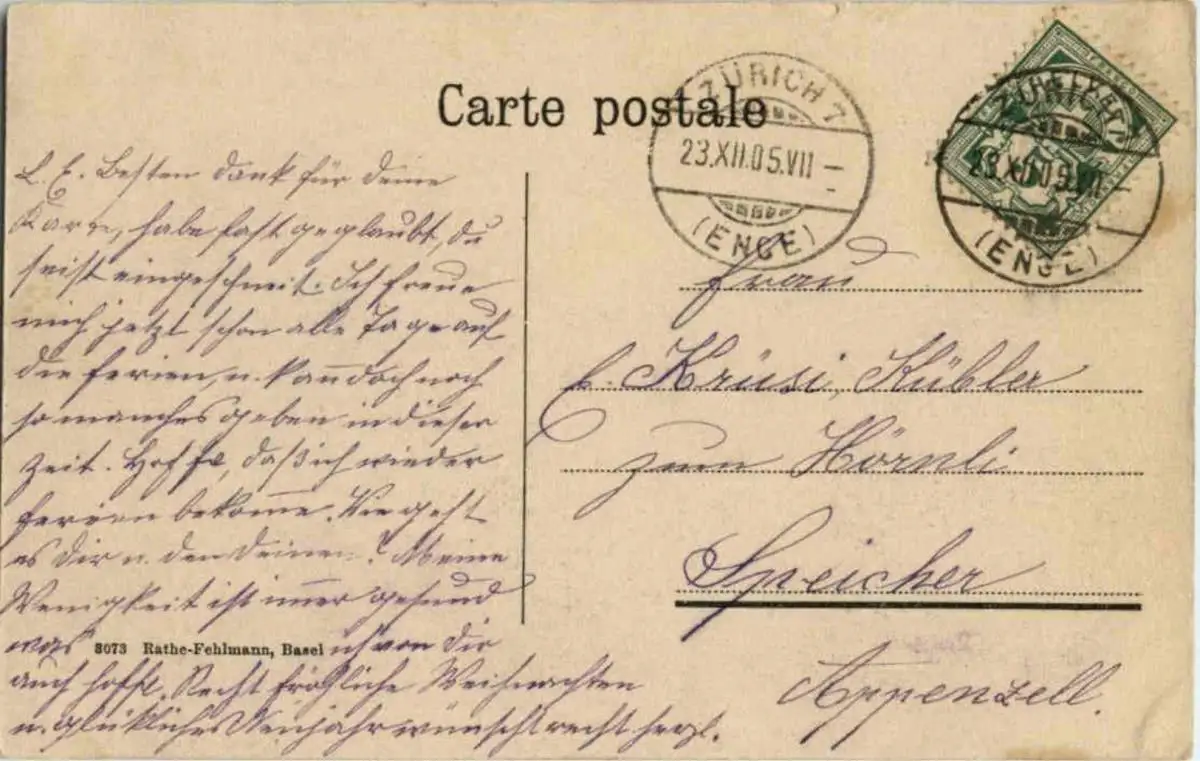 Carte postale
ZÜRICH 7
23.XII.05.VII –
(ENGE)
HELVETIA
5
ZÜRICH 7
23.XII.05.VII –
(ENGE)
L. E. Besten Dank für deine
Karte, habe fast geglaubt, du
seist eingeschneit. Ich freue
mich jetzt schon alle Tage auf
die Ferien, u. kann doch noch
so manches geben in dieser
Zeit. Hoffe, daß ich wieder
Ferien bekomme. Wie geht
es Dir u. den Deinen? Meine
Wenigkeit ist immer gesund
was ich von dir
auch hoffe. Recht fröhliche Weihnachten
u. glückliches Neujahr wünscht recht herzl.
8073 Rathe-Fehlmann, Basel
Frau
E. Krüsi, Kübler
zum Hörnli
Speicher
Appenzell.